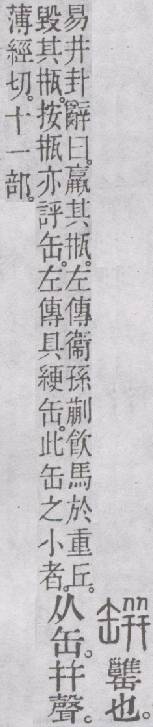 缾罋也。
易井卦辭曰。羸其瓶。左傳衞孫蒯飮馬於重丘。
毀其瓶。按瓶亦評缶。左傳具綆缶。此缶之小者。
从缶。幷聲。
薄經切。十一部。